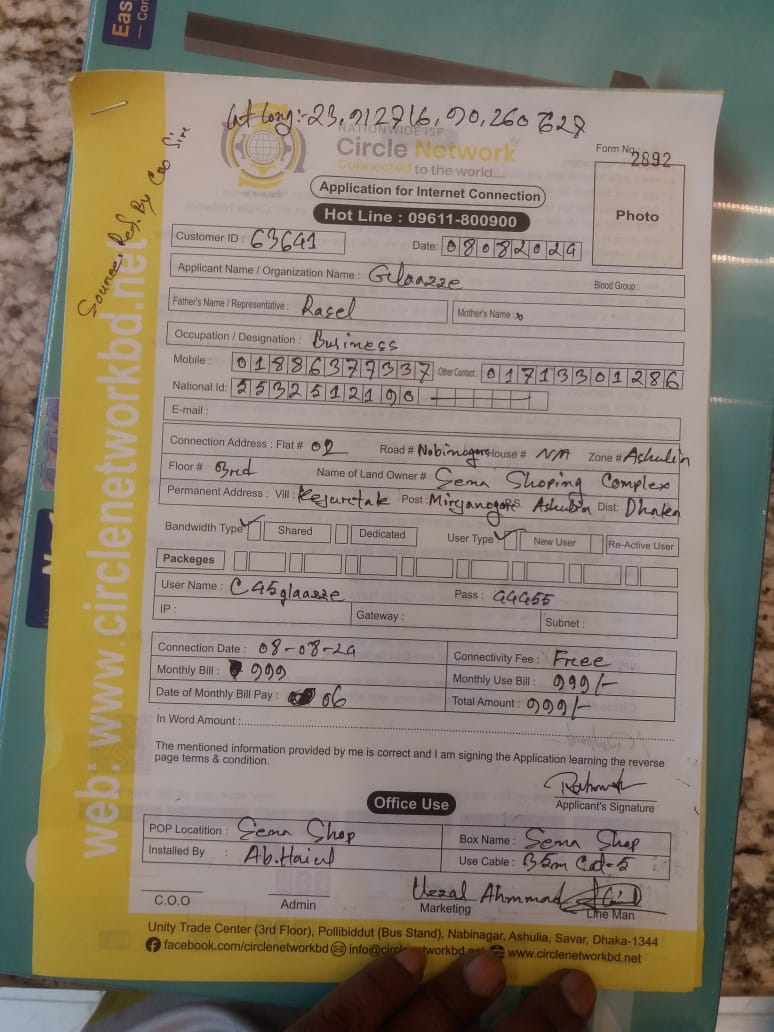 Eas
— Con
Lat Long:-23.912716, 90.260628
NATIONWIDE ISP
Circle Network
Connected to the world....
Form No.: 2892
Application for Internet Connection
Photo
Hot Line : 09611-800900
Source, Ref. By COO Sir
web: www.circlenetworkbd.net
Customer ID : 63641 Date: 08082024
Applicant Name / Organization Name : Glaazze Blood Group :
Father's Name / Representative : Rasel Mother's Name :
Occupation / Designation : Business
Mobile : 01886377337 Other Contact : 01713301286
National Id: 5532512190
E-mail :
Connection Address : Flat # 02 Road # Nobinogor House # N/A Zone # Ashulia
Floor # 3rd Name of Land Owner # Sena Shoping Complex
Permanent Address : Vill : Post : P.S Ashulia Dist: Dhaka
Bandwidth Type Shared Dedicated User Type New User Re-Active User
Packeges
User Name : C45glaazze Pass : 44455
IP : Gateway : Subnet :
Connection Date : 08-08-24 Connectivity Fee : Free
Monthly Bill : 999 Monthly Use Bill : 999/-
Date of Monthly Bill Pay : 06 Total Amount : 999/-
In Word Amount :
The mentioned information provided by me is correct and I am signing the Application learning the reverse
page terms & condition.
Applicant's Signature
Office Use
POP Locatition : Sena Shop Box Name : Sena Shop
Installed By : Use Cable : 35m Cat-5
C.O.O Admin Marketing Line Man
Unity Trade Center (3rd Floor), Pollibiddut (Bus Stand), Nabinagar, Ashulia, Savar, Dhaka-1344
facebook.com/circlenetworkbd info@circlenetworkbd.net www.circlenetworkbd.net